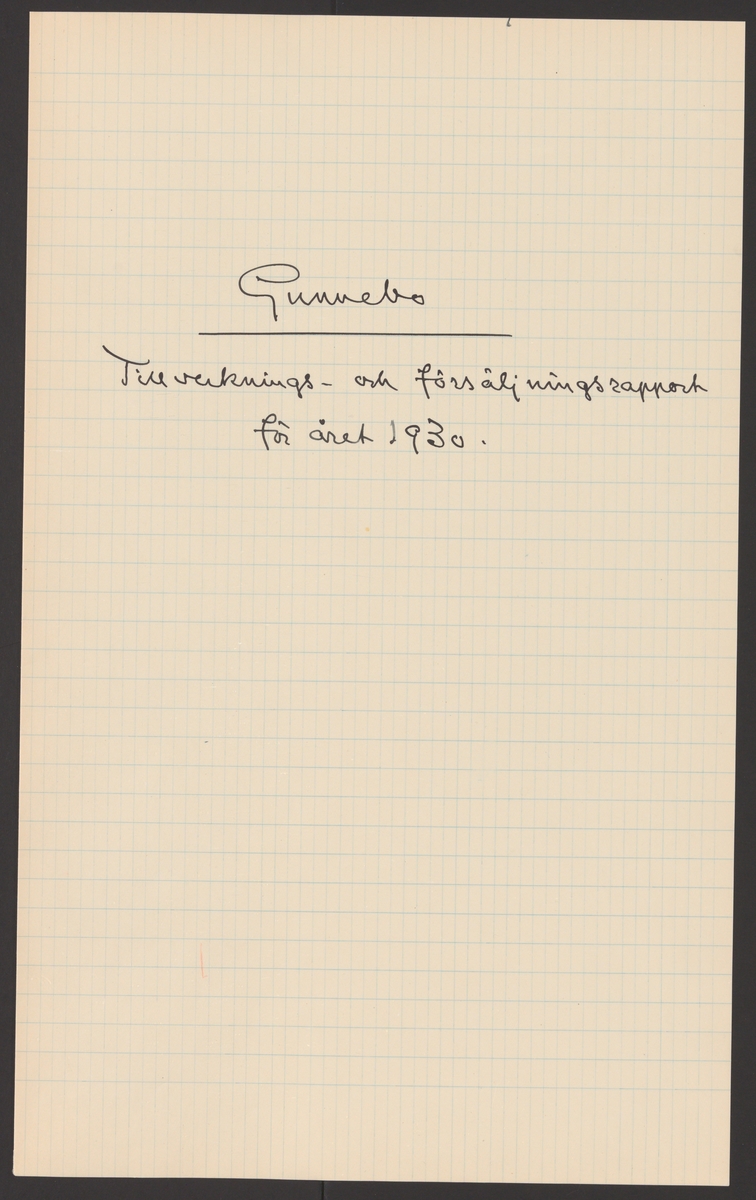 Gunnebo
Tillverknings- och försäljningsrapport
för året 1930.